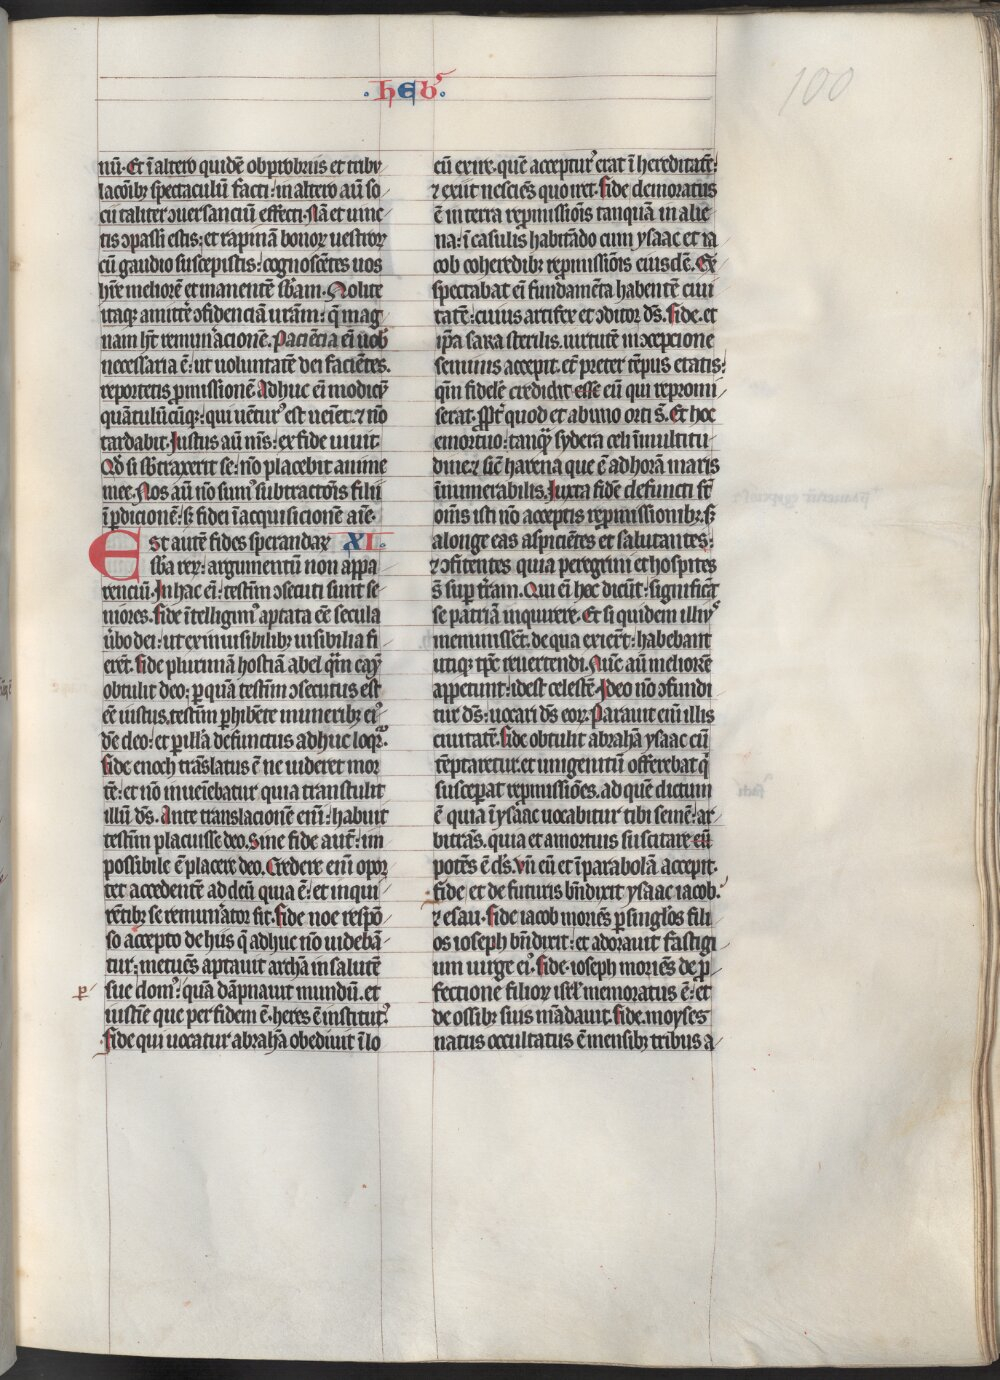 ·heb᷒·
100
nū· Et ī altero quidē obprobriis et tribu
lacōib; spectaculū facti: in altero aū so
cii taliter ↄuersanciū effecti· Nā et uinc
tis ↄpassi estis: et rapinā bonoꝝ uestroꝝ
cū gaudio suscepistis: cognoscētes uos
hr̄e meliorē et manentē sb̄am· Nolite
itaq; amittē ↄfidenciā urām: q̄ mag
nam hn̄t remun̄acionē· Paciēcia eī uob᷒
necessaria ē: ut uoluntatē dei faciētes·
reportetis ꝓmissionē· Adhuc eī modicū
quātulūcūq;: qui uētur᷒ est ueiet: ⁊ nō
tardabit· Justus aū m̄s: ex fide uiuit·
Qd̄ si sb̄traxerit se: nō placebit anime
mee· Nos aū nō sum᷒ subtractōis filii
ī ꝑdicionē: sꝫ fidei ī acquisicionē aīe·
Est autē fides sperandaꝝ XI·
sb̄a reꝝ: argumentū non appa
renciū· In hac eī: testīm ↄsecuti sunt se
niores· Fide ītelligim᷒ aptata eē secula
ūbo dei: ut ex inuisibilib; uisibilia fi
erēt· Fide plurimā hostiā abel q̄m cayn
obtulit deo: ꝑ quā testīm ↄsecutus est
eē iustus, testīm ꝑhibēte munerib; ei᷒
dē deo: et ꝑ illā defunctus adhuc loqr̄·
Fide enoch trāslatus ē ne uideret mor
tē: et nō inueiebatur quia transtulit
illū ds̄· Ante translacionē enī: habuit
testīm placuisse deo· Sine fide aut̄: im
possibile ē placere deo· Credere enī opor
tet accedentē ad deū quia ē: et inqui
rētib; se remun̄ator fit· Fide noe respō
so accepto de hiis q̄ adhuc nō uidebā
tur: metuēs aptauit archā in salutē
sue dom᷒: quā dāpnauit mundū· et
iusticie que per fidem ē: heres ē institut᷒·
Fide qui uocatur abrahā obediuit ī lo
cū exire· quē acceptur᷒ erat ī hereditatē:
⁊ exiit nesciēs quo iret· Fide demoratus
ē in terra repmissiōis tanquā in alie
na: ī casulis habitādo cum ysaac et ia
cob coheredib; repmissiōis eiusdē· Ex
spectabat eī fundamēta habentē ciui
tatē: cuius artifex et ↄditor ds̄· Fide· et
ip̄a sara sterilis· uirtutē in ↄcepcione
seminis accepit· et̄ preter tēpus etatis:
qm̄ fidelē credidit esse eū qui repromi
serat· Ppt̄ quod et ab uno orti s̄· Et hoc
emortuo: tanq̄ sydera celi ī multitu
dine: ⁊ sic̄ harena que ē ad horā maris
īnumerabilis· Juxta fidē defuncti st̄
om̄s isti nō acceptis repmissionib;· sꝫ
a longe eas aspiciētes et salutantes:
⁊ ↄfitentes quia peregrini et hospites
s̄ sup t̄ram· Qui eī hec dicūt: significāt
se patriā inquirere· Et si quidem illi᷒
meminissēt· de qua exierūt: habebant
utiq; tp̄c reuertendi· Nūc aū meliorē
appetunt: id est celestē· Ideo nō ↄfundi
tur ds̄: uocari ds̄ eoꝝ· Parauit enī illis
ciuitatē· Fide obtulit abrahā ysaac cū
tēptaretur· et unigenitū offerebat q̄
susceperat repmissiōes· ad quē dictum
ē quia ī ysaac uocabitur tibi semē: ar
bitrās· quia et a mortuis suscitare eū
potēs ē ds̄· Vn̄ eū et ī parabolā accepit·
Fide et de futuris bn̄dixit ysaac iacob·
⁊ esau· Fide iacob moriēs ꝑ singlos fili
os ioseph bn̄dixit: et adorauit fastigi
um uirge ei᷒· Fide· ioseph moriēs de ꝓ
fectione filioꝝ isrl̄ memoratus ē: et
de ossib; suis mādauit· Fide· moyses
natus occultatus ē mensib; tribus a